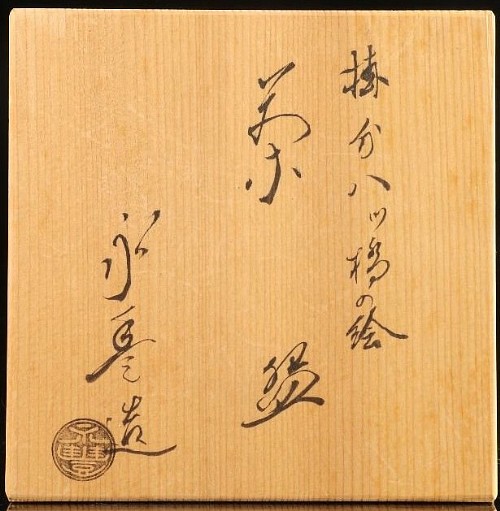 掛分八ツ橋の絵
茶盌
永 造